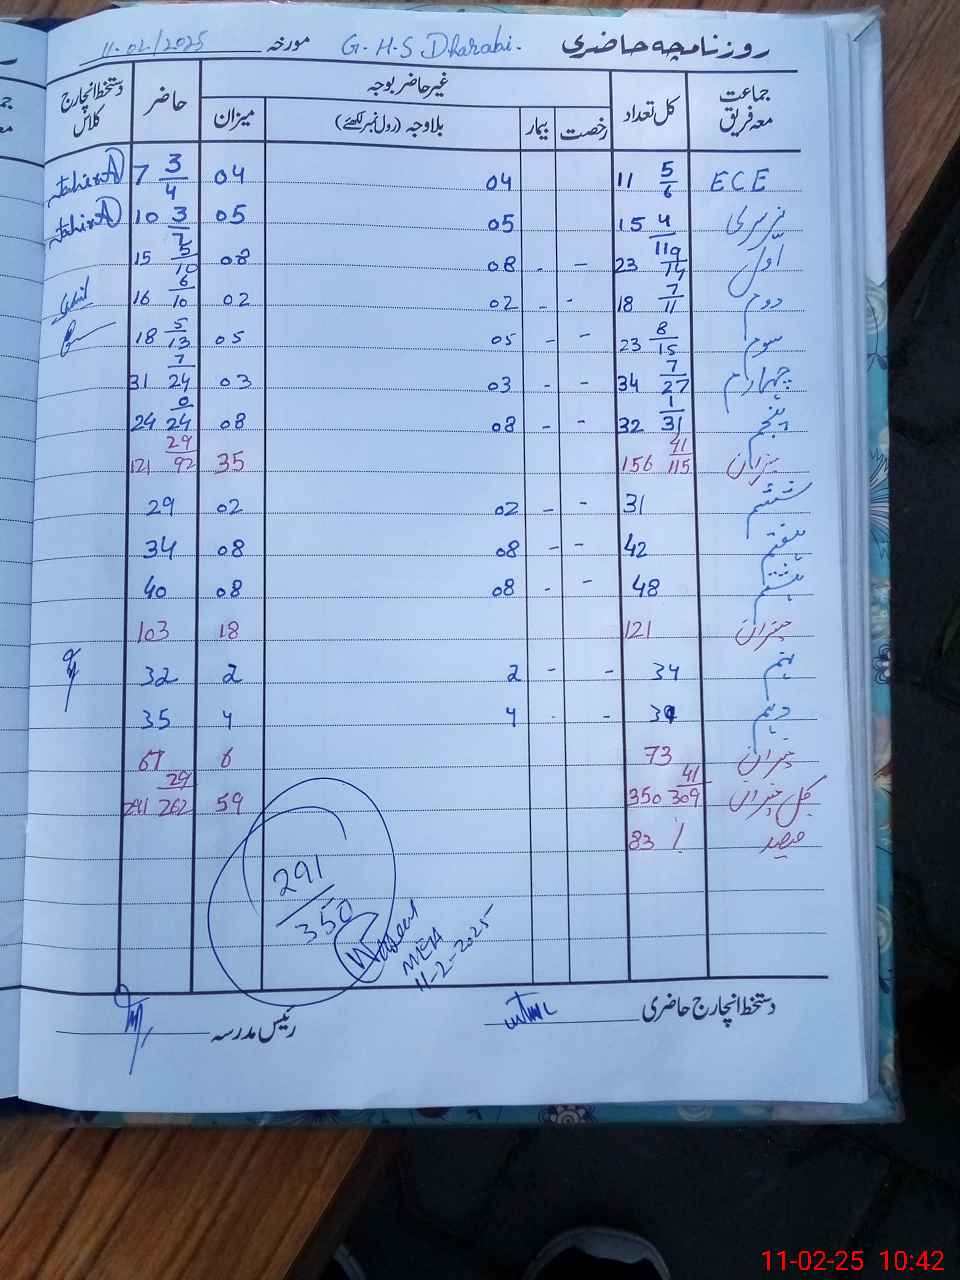 روزنامچہ حاضری G.H.S Dharabi. مورخہ 11.02/2025
جماعت معہ فریق کل تعداد غیر حاضر بوجہ حاضر دستخط انچارج کلاس
رخصت بیمار بلاوجہ (رول نمبر لکھئے) میزان
ECE 11 5/6 04 04 7 3/4
نرسری 15 4/11 05 05 10 3/7
اول 23 9/14 - - 08 08 15 5/10
دوم 18 7/11 - - 02 02 16 6/10
سوم 23 8/15 - - 05 05 18 5/13
چہارم 34 7/27 - - 03 03 31 7/24
پنجم 32 1/31 - - 08 08 24 0/24
میزان 156 41/115 35 121 29/92
ششم 31 - - 02 02 29
ہفتم 42 - - 08 08 34
ہشتم 48 - - 08 08 40
میزان 121 18 103
نہم 34 - - 2 2 32
دہم 39 - - 4 4 35
میزان 73 6 67
کل میزان 350 41/309 59 291 29/262
فیصد 83 %
291/350
Waseem
MEA
11-2-2025
دستخط انچارج حاضری رئیس مدرسہ
11-02-25 10:42